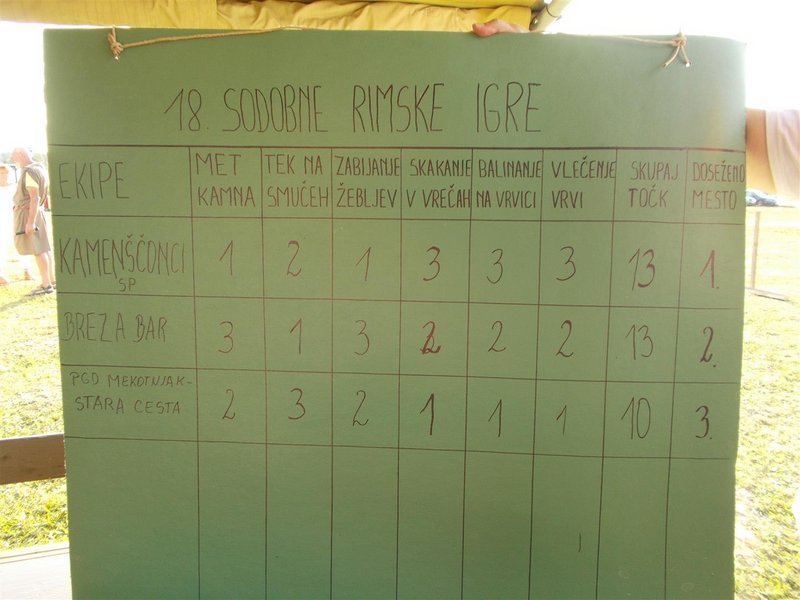 18. SODOBNE RIMSKE IGRE
EKIPE MET KAMNA TEK NA SMUČEH ZABIJANJE ŽEBLJEV SKAKANJE V VREČAH BALINANJE NA VRVICI VLEČENJE VRVI SKUPAJ TOČK DOSEŽENO MESTO
KAMENŠČONCI SP 1 2 1 3 3 3 13 1.
BREZA BAR 3 1 3 2 2 2 13 2.
PGD MEKOTNJAK- STARA CESTA 2 3 2 1 1 1 10 3.